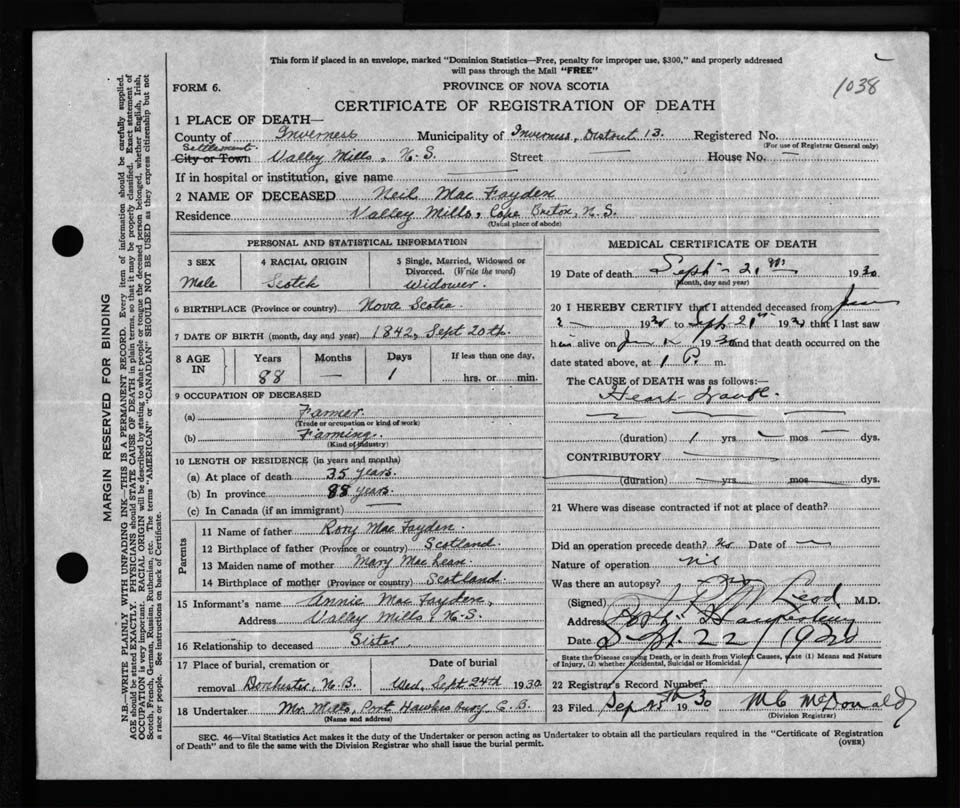 This form if placed in an envelope, marked "Dominion Statistics—Free, penalty for improper use, $300," and properly addressed
will pass through the Mail "FREE"
1038
FORM 6.
PROVINCE OF NOVA SCOTIA
CERTIFICATE OF REGISTRATION OF DEATH
1 PLACE OF DEATH—
County of Inverness Municipality of Inverness, District 13. Registered No.
(For use of Registrar General only)
Settlement
City or Town Valley Mills, N.S. Street — House No. —
If in hospital or institution, give name —
2 NAME OF DECEASED Neil Mac Fayden
Residence Valley Mills, Cape Breton, N.S.
(Usual place of abode)
PERSONAL AND STATISTICAL INFORMATION
3 SEX 4 RACIAL ORIGIN 5 Single, Married, Widowed or
Divorced. (Write the word)
Male Scotch Widower
6 BIRTHPLACE (Province or country) Nova Scotia
7 DATE OF BIRTH (month, day and year) 1842, Sept 20th.
8 AGE IN Years Months Days If less than one day,
88 — 1 hrs. or min.
9 OCCUPATION OF DECEASED
(a) Farmer
(Trade or occupation or kind of work)
(b) Farming.
(Kind of industry)
10 LENGTH OF RESIDENCE (in years and months)
(a) At place of death 35 years.
(b) In province 88 years.
(c) In Canada (if an immigrant) —
Parents
11 Name of father Rory Mac Fayden.
12 Birthplace of father (Province or country) Scotland.
13 Maiden name of mother Mary Mac Lean
14 Birthplace of mother (Province or country) Scotland.
15 Informant's name Annie Mac Fayden,
Address Valley Mills, N.S.
16 Relationship to deceased Sister
17 Place of burial, cremation or Date of burial
removal Dorchester, N.B. Wed, Sept 24th 1930
18 Undertaker Mr. Mills, Port Hawkesbury C.B.
(Name and address)
MEDICAL CERTIFICATE OF DEATH
19 Date of death Sept 21 1930
(Month, day and year)
20 I HEREBY CERTIFY that I attended deceased from
1930 to Sept 21st 1930 that I last saw
him alive on 1930 and that death occurred on the
date stated above, at 1 P. m.
The CAUSE of DEATH was as follows:—
Heart
(duration) 1 yrs mos dys.
CONTRIBUTORY
(duration) yrs mos dys.
21 Where was disease contracted if not at place of death?
Did an operation precede death? No Date of —
Nature of operation nil
Was there an autopsy? no
(Signed) McLeod M.D.
Address Port Hawkesbury
Date Sept 22 / 1930
State the Disease causing Death, or in death from Violent Causes, state (1) Means and Nature
of Injury, (2) whether Accidental, Suicidal or Homicidal.
22 Registrar's Record Number
23 Filed Sep 25th 1930 M C McDonald
(Division Registrar)
SEC. 46—Vital Statistics Act makes it the duty of the Undertaker or person acting as Undertaker to obtain all the particulars required in the "Certificate of Registration
of Death" and to file the same with the Division Registrar who shall issue the burial permit.
(OVER)
MARGIN RESERVED FOR BINDING
N.B.—WRITE PLAINLY WITH UNFADING INK—THIS IS A PERMANENT RECORD. Every item of information should be carefully supplied.
AGE should be stated EXACTLY. PHYSICIANS should STATE CAUSE OF DEATH in plain terms, so that it may be properly classified. Exact statement of
OCCUPATION is very important. RACIAL ORIGIN will be described by stating to what people or tongue the deceased person belonged, whether English, Irish,
Scotch, French, German, Russian, Ruthenian, etc. The terms "AMERICAN" or "CANADIAN" SHOULD NOT BE USED as they express citizenship but not
a race or people. See instructions on back of Certificate.